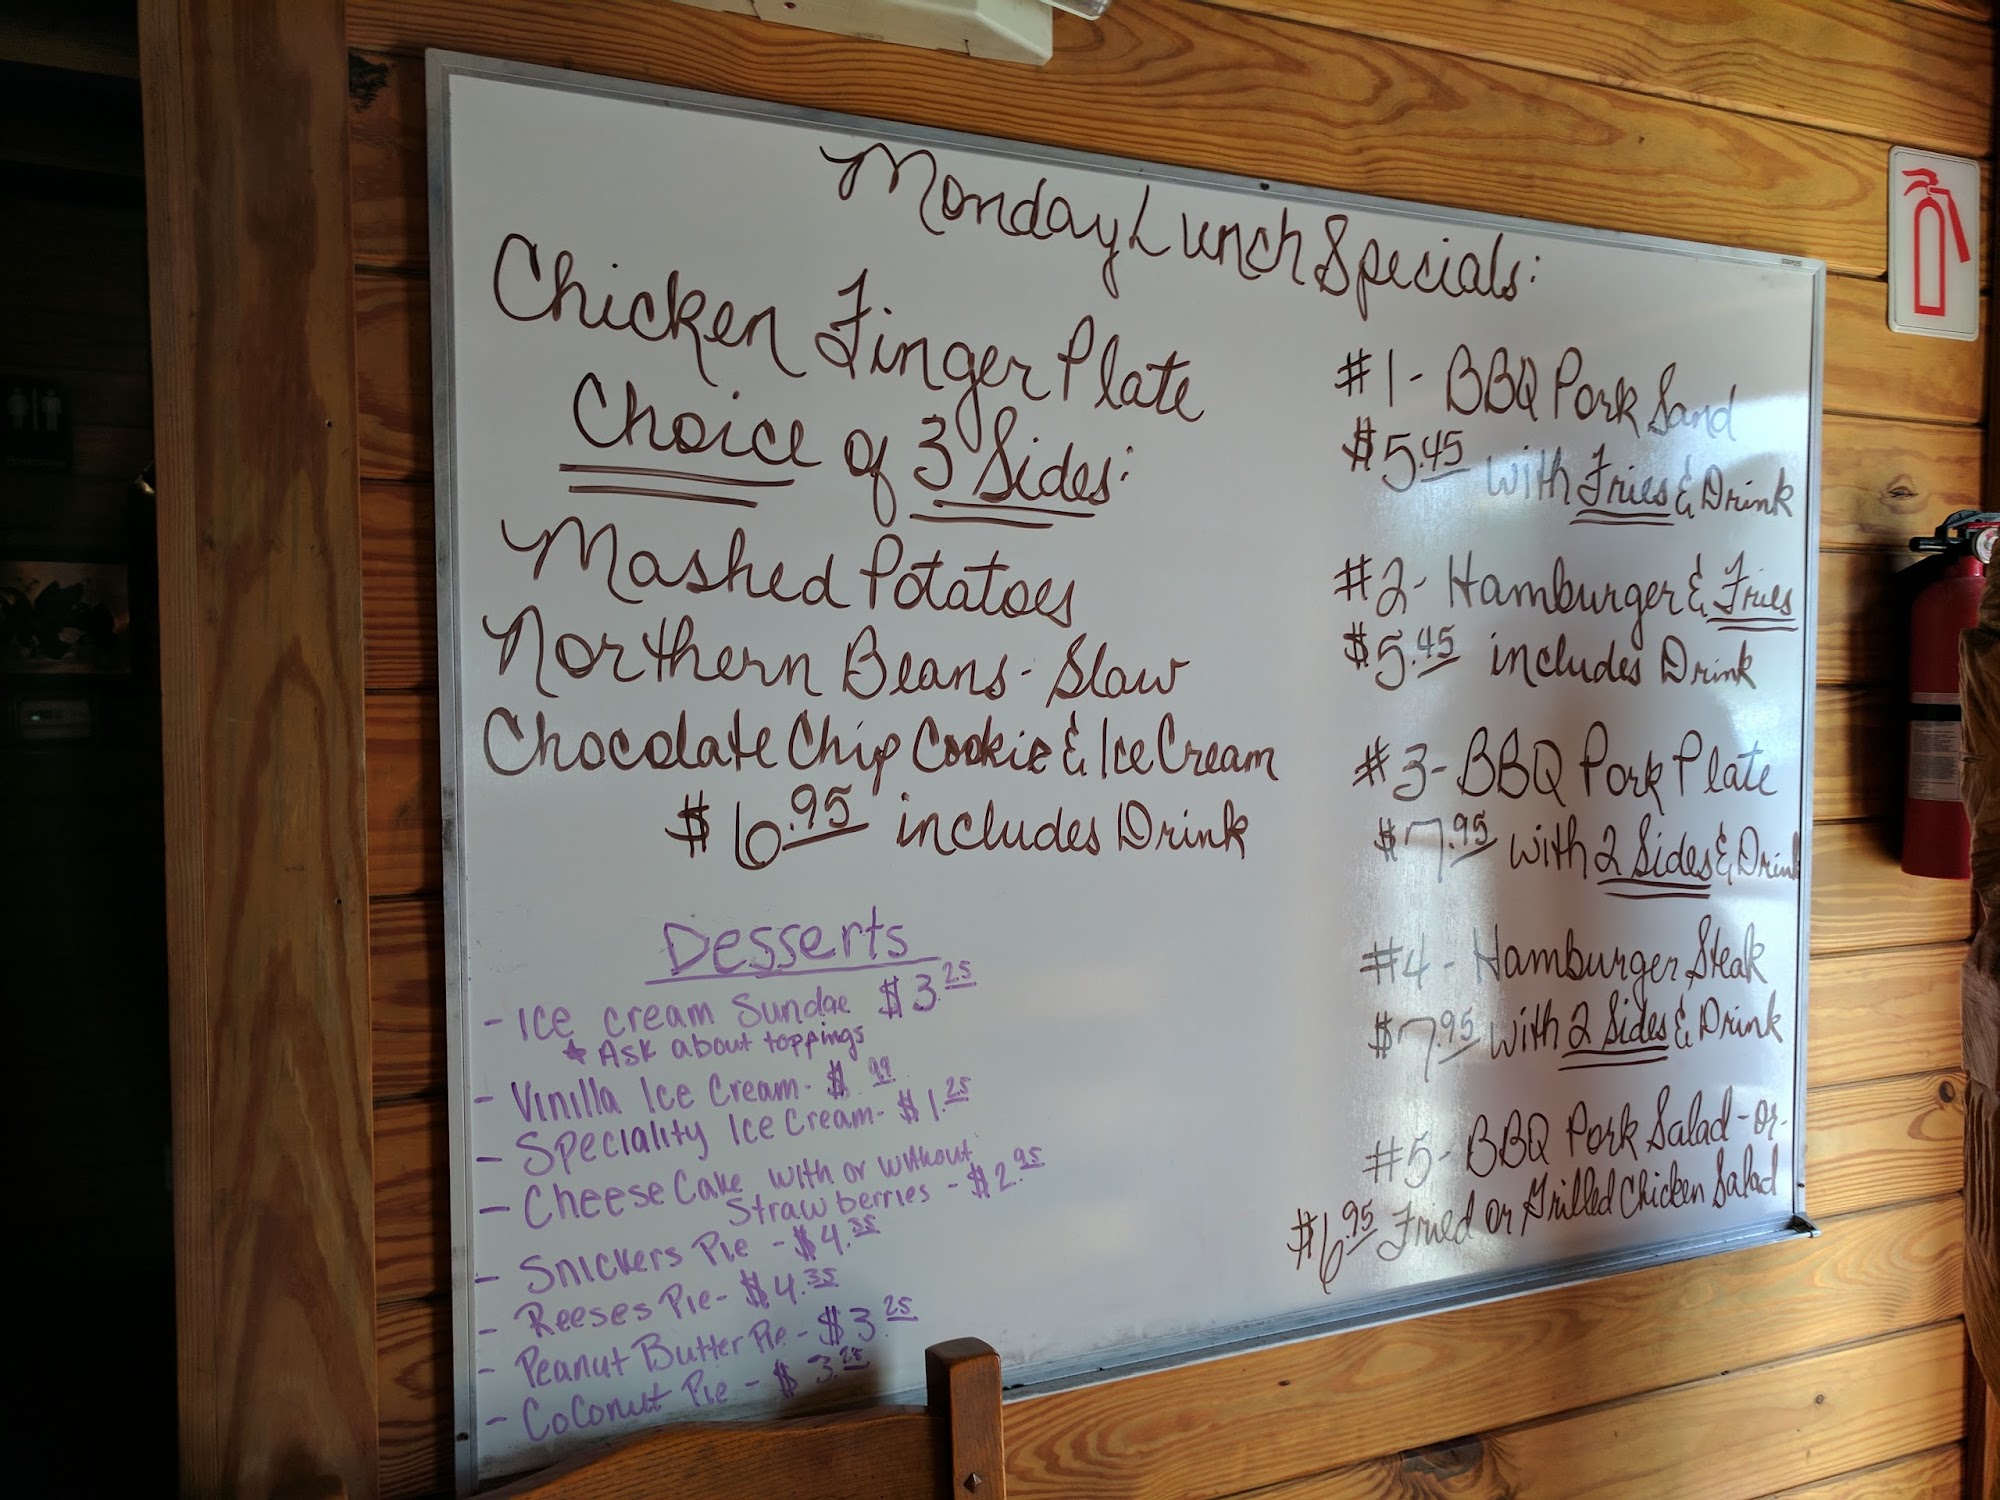 Monday Lunch Specials:
Chicken Finger Plate
Choice of 3 Sides:
Mashed Potatoes
Northern Beans - Slaw
Chocolate Chip Cookie & Ice Cream
$6.95 includes Drink
Desserts
- Ice cream Sundae $3.25
* Ask about toppings
- Vinilla Ice Cream - $.99
- Speciality Ice Cream - $1.25
- Cheese Cake with or without
Strawberries - $2.95
- Snickers Pie - $4.35
- Reeses Pie - $4.35
- Peanut Butter Pie - $3.25
- Coconut Pie - $3.25
#1 - BBQ Pork Sand
$5.45 with Fries & Drink
#2 - Hamburger & Fries
$5.45 includes Drink
#3 - BBQ Pork Plate
$7.95 with 2 Sides & Drink
#4 - Hamburger Steak
$7.95 with 2 Sides & Drink
#5 - BBQ Pork Salad - or -
$6.95 Fried or Grilled Chicken Salad